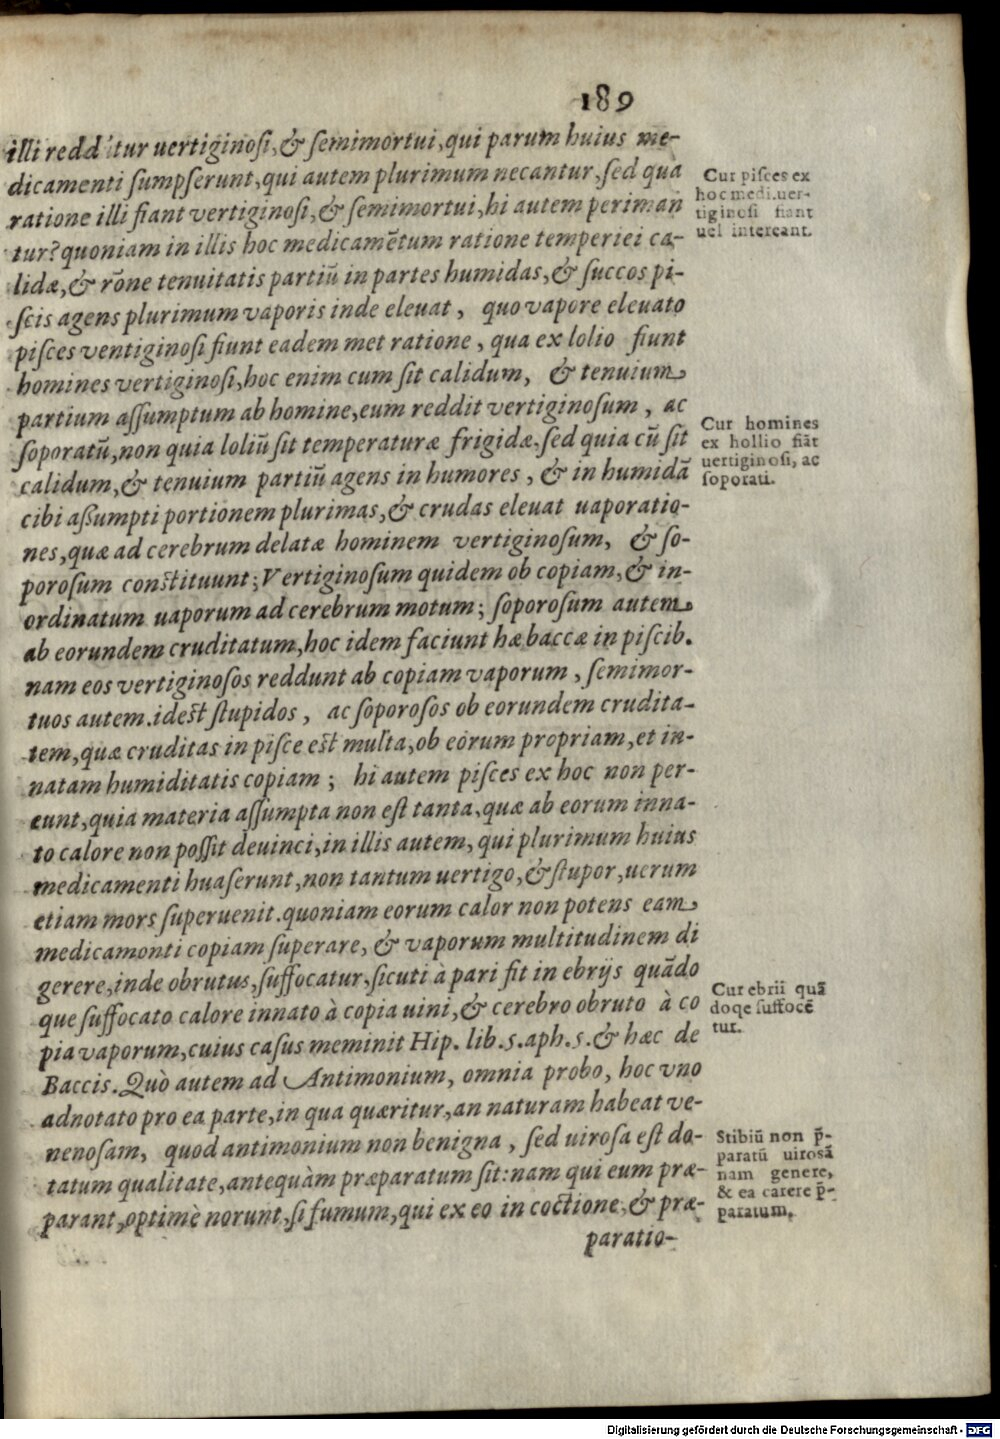 189
illi redd itur uertiginosi, & semimortui, qui parum huius me-
dicamenti sumpserunt, qui autem plurimum necantur, sed qua
ratione illi fiant vertiginosi, & semimortui, hi autem periman
tur? quoniam in illis hoc medicamētum ratione temperiei ca-
lidæ, & rōne tenuitatis partiū in partes humidas, & succos pi-
scis agens plurimum vaporis inde eleuat, quo vapore eleuato
pisces ventiginosi fiunt eadem met ratione, qua ex lolio fiunt
homines vertiginosi, hoc enim cum sit calidum, & tenuium
partium assumptum ab homine, eum reddit vertiginosum, ac
soporatū, non quia loliū sit temperaturæ frigidæ, sed quia cū sit
calidum, & tenuium partiū agens in humores, & in humidā
cibi aßumpti portionem plurimas, & crudas eleuat uaporatio-
nes, quæ ad cerebrum delatæ hominem vertiginosum, & so-
porosum constituunt; Vertiginosum quidem ob copiam, & in-
ordinatum uaporum ad cerebrum motum; soporosum autem
ab eorundem cruditatum, hoc idem faciunt hæ baccæ in piscib.
nam eos vertiginosos reddunt ab copiam vaporum, semimor-
tuos autem .idest stupidos, ac soporosos ob eorundem crudita-
tem, quæ cruditas in pisce est multa, ob eorum propriam, et in-
natam humiditatis copiam; hi autem pisces ex hoc non per-
eunt, quia materia assumpta non est tanta, quæ ab eorum inna-
to calore non possit deuinci, in illis autem, qui plurimum huius
medicamenti huaserunt, non tantum uertigo, & stupor, uerum
etiam mors superuenit. quoniam eorum calor non potens eam
medicamonti copiam superare, & vaporum multitudinem di
gerere, inde obrutus, suffocatur, sicuti à pari fit in ebrijs quādo
que suffocato calore innato à copia uini, & cerebro obruto à co
pia vaporum, cuius casus meminit Hip. lib. 5. aph. 5. & hæc de
Baccis. Quò autem ad Antimonium, omnia probo, hoc vno
adnotato pro ea parte, in qua quæritur, an naturam habeat ve-
nenosam, quod antimonium non benigna, sed uirosa est do-
tatum qualitate, antequàm præparatum sit: nam qui eum præ-
parant, optimè norunt, si fumum, qui ex eo in coctione, & præ-
paratio-
Cur pisces ex
hoc medi. uer-
tiginosi fiant
uel intereant.
Cur homines
ex hollio fiāt
uertiginosi, ac
soporati.
Cur ebrii quā
doqe suffocē
tur.
Stibiū non p̄-
paratū uirosā
nam genere,
& ea carere p̄-
paratum.
Digitalisierung gefördert durch die Deutsche Forschungsgemeinschaft - DFG